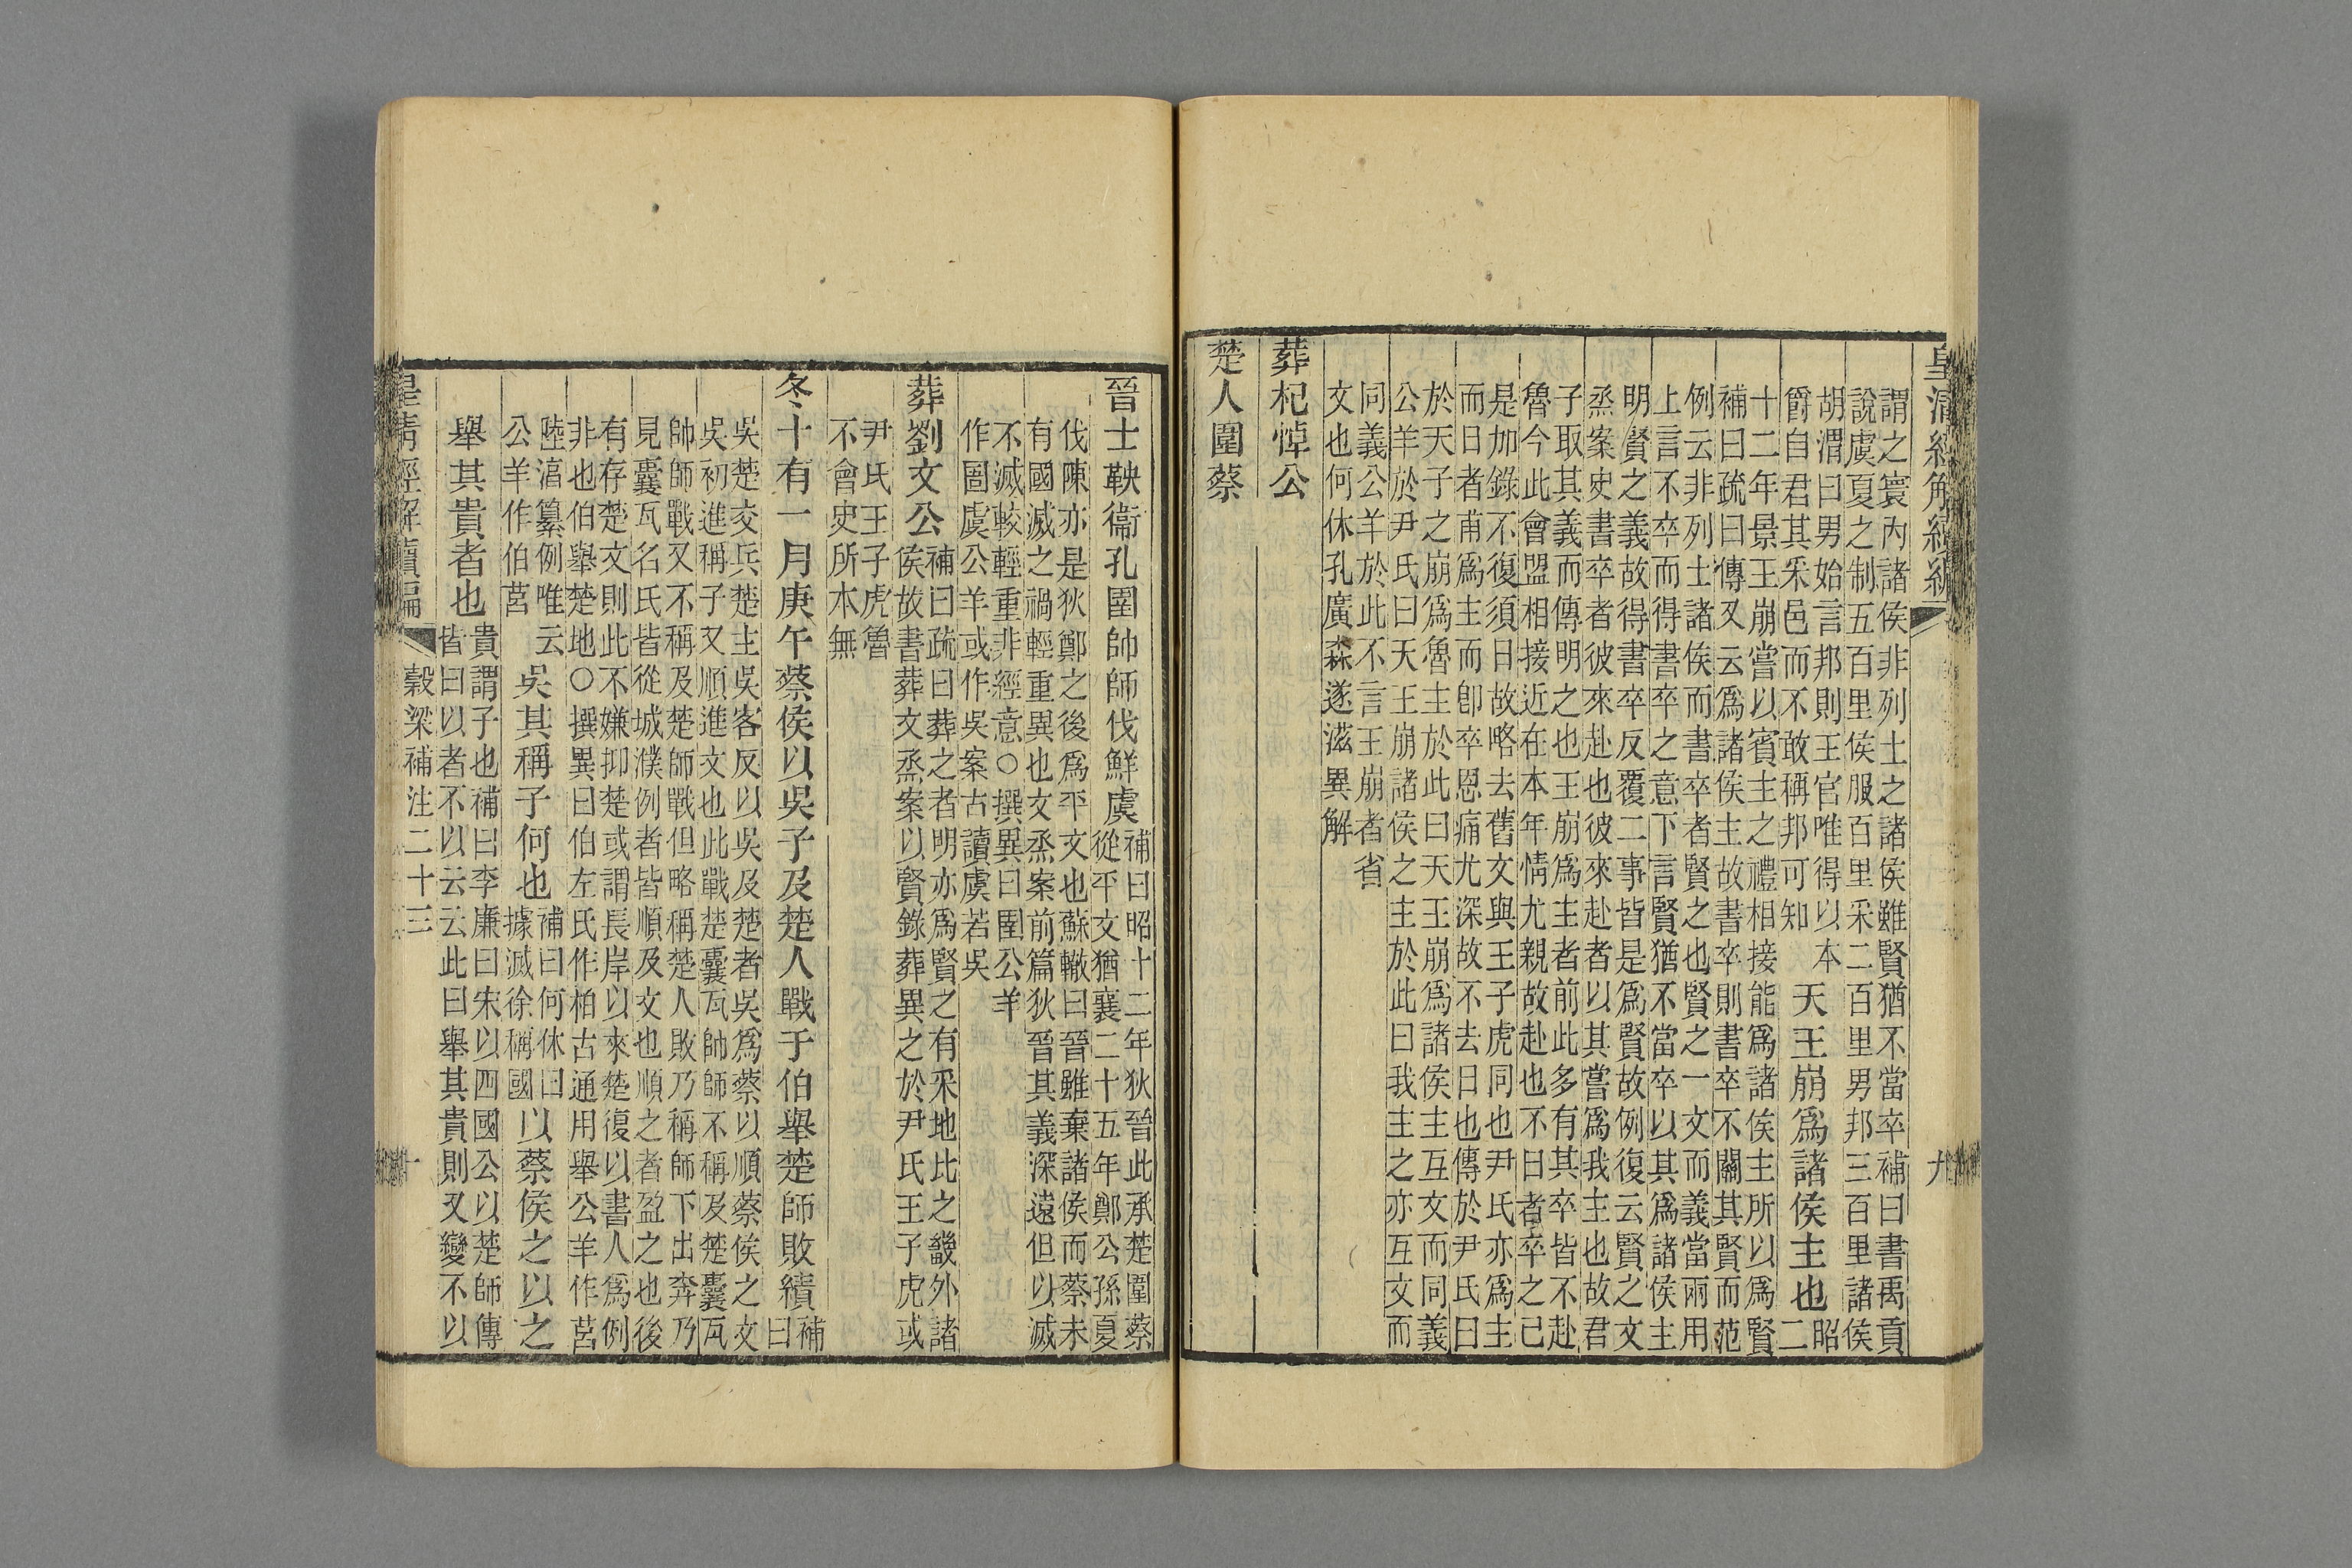 皇清經解續編 九
謂之寰內諸侯非列土之諸侯雖賢猶不當卒補曰書禹貢
說虞夏之制五百里侯服百里采二百里男邦三百里諸侯
胡渭曰男始言邦則王官唯得以本
爵自君其采邑而不敢稱邦可知
天王崩爲諸侯主也
昭
二
十二年景王崩嘗以賓主之禮相接能爲諸侯主所以爲賢
補曰疏曰傳又云爲諸侯主故書卒則書卒不關其賢而范
例云非列土諸侯而書卒者賢之也賢之一文而義當兩用
上言不卒而得書卒之意下言賢猶不當卒以其爲諸侯主
明賢之義故得書卒反覆二事皆是爲賢故例復云賢之文
烝案史書卒者彼來赴也彼來赴者以其嘗爲我主也故君
子取其義而傳明之也王崩爲主者前此多有其卒皆不赴
魯今此會盟相接近在本年情尤親故赴也不日者卒之已
是加錄不復須日故略去舊文與王子虎同也尹氏亦爲主
而日者甫爲主而卽卒恩痛尤深故不去日也傳於尹氏曰
於天子之崩爲魯主於此曰天王崩爲諸侯主互文而同義
公羊於尹氏曰天王崩諸侯之主於此曰我主之亦互文而
同義公羊於此不言王崩者省
文也何休孔廣森遂滋異解
葬杞悼公
楚人圍蔡
晉士鞅衞孔圉帥師伐鮮虞
補曰昭十二年狄晉此承楚圍蔡
從平文猶襄二十五年鄭公孫夏
伐陳亦是狄鄭之後爲平文也蘇轍曰晉雖棄諸侯而蔡未
有國滅之禍輕重異也文烝案前篇狄晉其義深遠但以滅
不滅較輕重非經意○撰異曰圉公羊
作圄虞公羊或作吳案古讀虞若吳
葬劉文公
補曰疏曰葬之者明亦爲賢之有采地比之畿外諸
侯故書葬文烝案以賢錄葬異之於尹氏王子虎或
尹氏王子虎魯
不會史所本無
冬十有一月庚午蔡侯以吳子及楚人戰于伯舉楚師敗績
補
曰
吳楚交兵楚主吳客反以吳及楚者吳爲蔡以順蔡侯之文
吳初進稱子又順進文也此戰楚囊瓦帥師不稱及楚囊瓦
帥師戰又不稱及楚師戰但略稱楚人敗乃稱師下出奔乃
見囊瓦名氏皆從城濮例者皆順及文也順之者盈之也後
有存楚文則此不嫌抑楚或謂長岸以來楚復以書人爲例
非也伯舉楚地○撰異曰伯左氏作柏古通用舉公羊作莒
陸淳纂例唯云
公羊作伯莒
吳其稱子何也
補曰何休曰
據滅徐稱國
以蔡侯之以之
舉其貴者也
貴謂子也補曰李廉曰宋以四國公以楚師傳
皆曰以者不以云云此曰舉其貴則又變不以
皇清經解續編 穀梁補注二十三 十